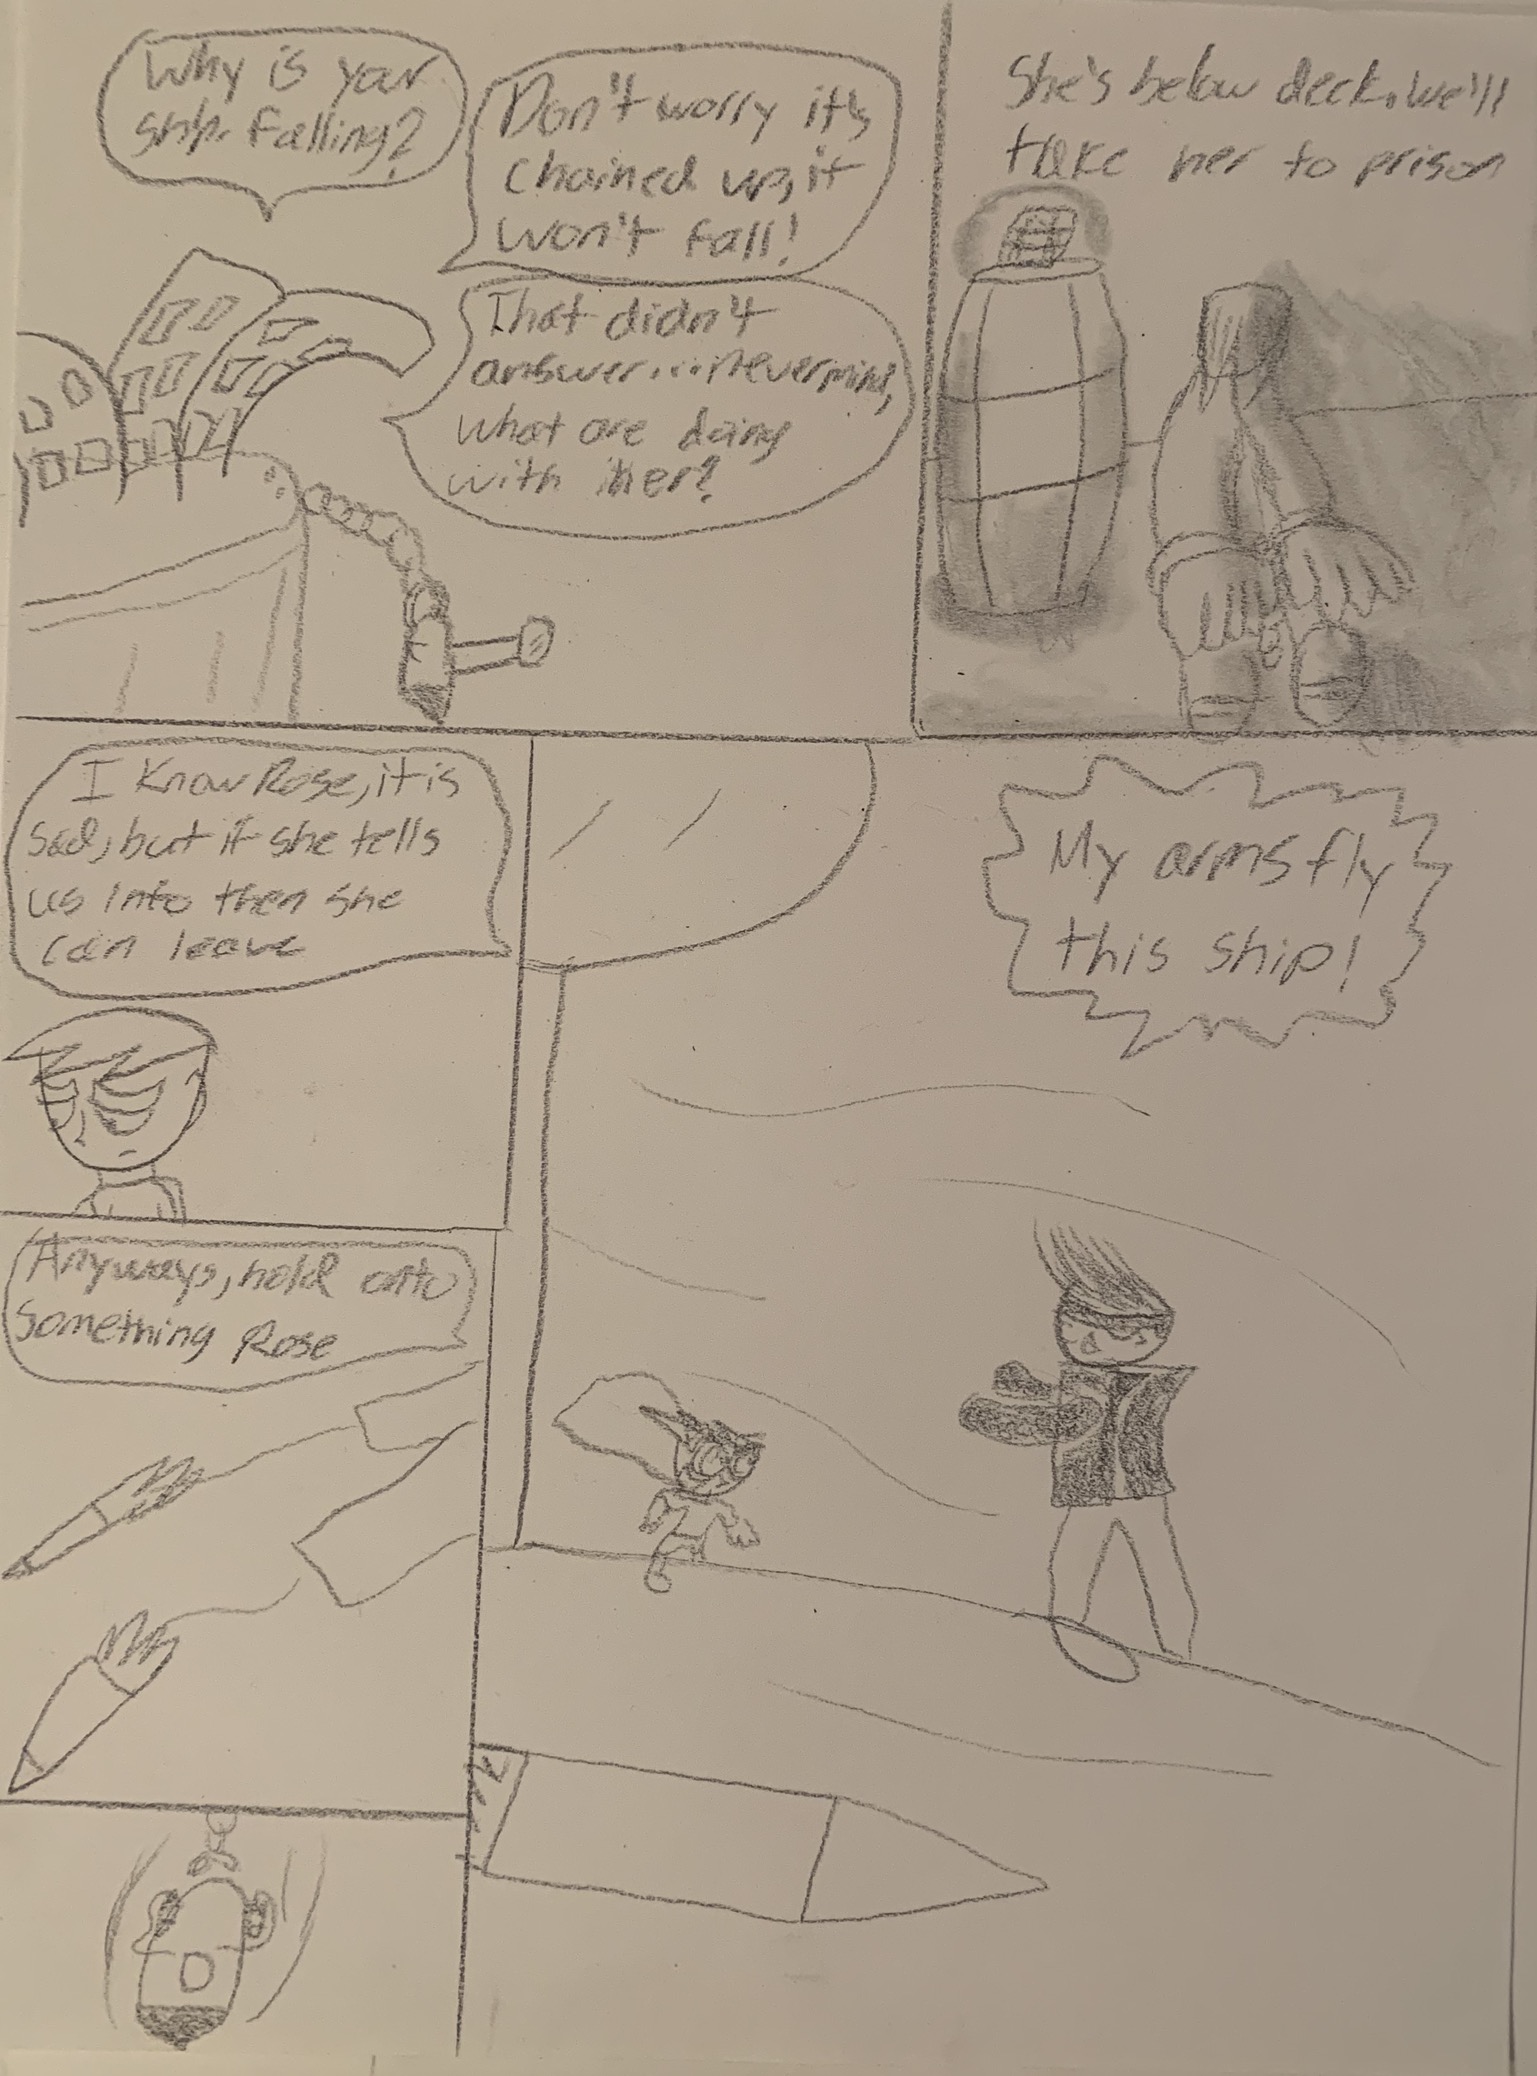 Why is your
ship falling?
Don't worry it's
chained up, it
won't fall!
That didn't
answer...nevermind,
what are doing
with her?
She's below deck. We'll
take her to prison
I know Rose, it is
sad, but if she tells
us info then she
can leave
My arms fly
this ship!
Anyways, hold onto
something Rose